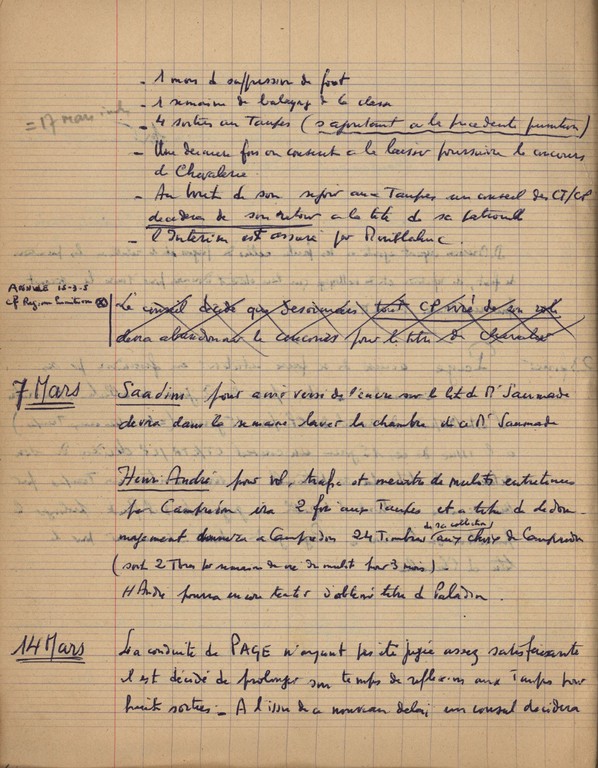 - 1 mois de suppression de foot
- 1 semaine de balayage de la classe
- 4 sorties aux Taupes (s'ajoutant à la précédente punition)
= 17 mars
- Une dernière fois on consent à le laisser poursuivre le concours
de Chevalerie.
- Au bout de son séjour aux Taupes un conseil des CT/CP
décidera de son retour à la tête de sa patrouille
- l'Interim est assuré par
ANNULÉ 15-3-5
cf Région punitions
Le conseil décide que désormais tout CP viré de son rôle
devra abandonner le concours pour le titre de chevalier
7 Mars
Saadim pour avoir versé de l'encre sur le lit de Mr Saumade
devra dans la semaine laver la chambre de ce Mr Saumade
Henri André pour vol, trafic et meurtre de mulots entretenus
par Campredon ira 2 fois aux Taupes et à titre de dédom-
magement donnera à Campredon 24 Timbres de sa collection aux choix de Campredon
(soit 2 Tbres par semaine de vie du mulot pour 3 mois)
H André pourra encore tenter d'obtenir titre de Paladin.
14 Mars
La conduite de PAGE n'ayant pas été jugée assez satisfaisante
il est décidé de prolonger son temps de réflexion aux Taupes pour
huit sorties - A l'issue de ce nouveau délai un conseil décidera